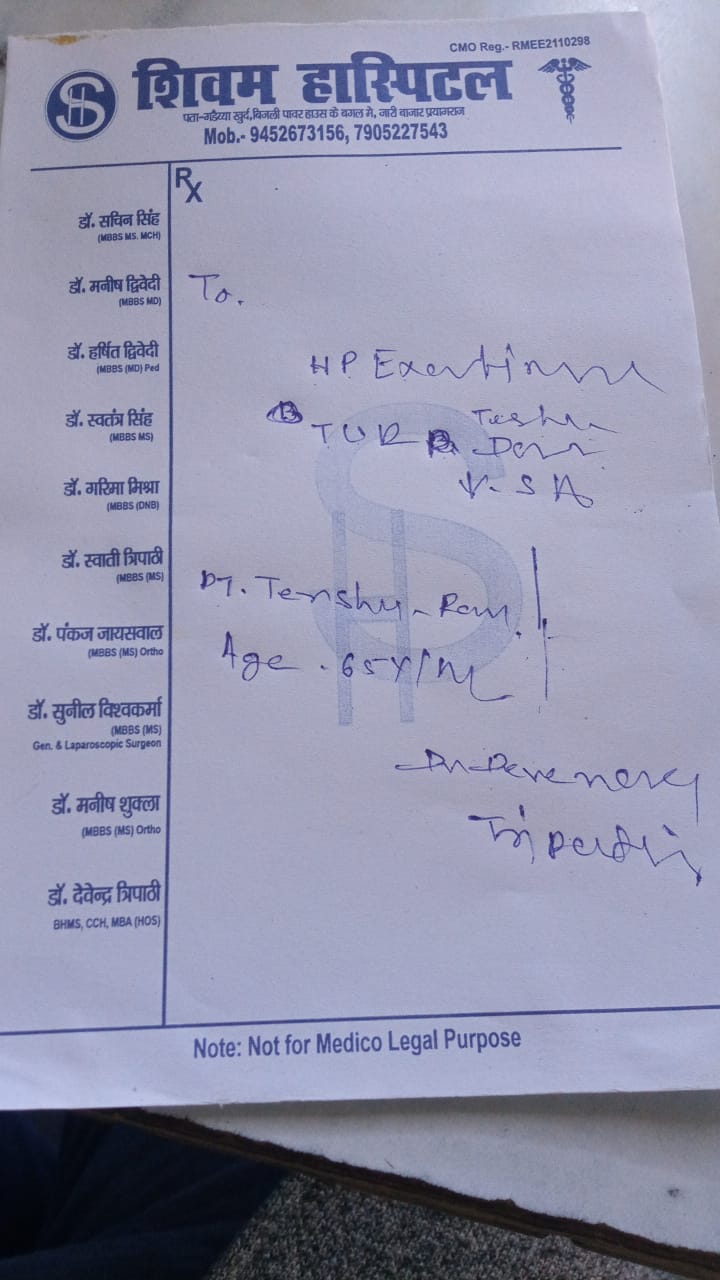 CMO Reg.- RMEE2110298
शिवम हास्पिटल
पता-गड़ैय्या खुर्द,बिजली पावर हाउस के बगल मे, नारी बाजार प्रयागराज
Mob.- 9452673156, 7905227543
Rx
डॉ. सचिन सिंह
(MBBS MS. MCH)
डॉ. मनीष द्विवेदी
(MBBS MD)
डॉ. हर्षित द्विवेदी
(MBBS (MD) Ped
डॉ. स्वतंत्र सिंह
(MBBS MS)
डॉ. गरिमा मिश्रा
(MBBS (DNB)
डॉ. स्वाती त्रिपाठी
(MBBS (MS)
डॉ. पंकज जायसवाल
(MBBS (MS) Ortho
डॉ. सुनील विश्वकर्मा
(MBBS (MS)
Gen. & Laparoscopic Surgeon
डॉ. मनीष शुक्ला
(MBBS (MS) Ortho
डॉ. देवेन्द्र त्रिपाठी
BHMS, CCH, MBA (HOS)
To.
HP
TUR
Ram
Age . 65Y/M
Tripathi
Note: Not for Medico Legal Purpose